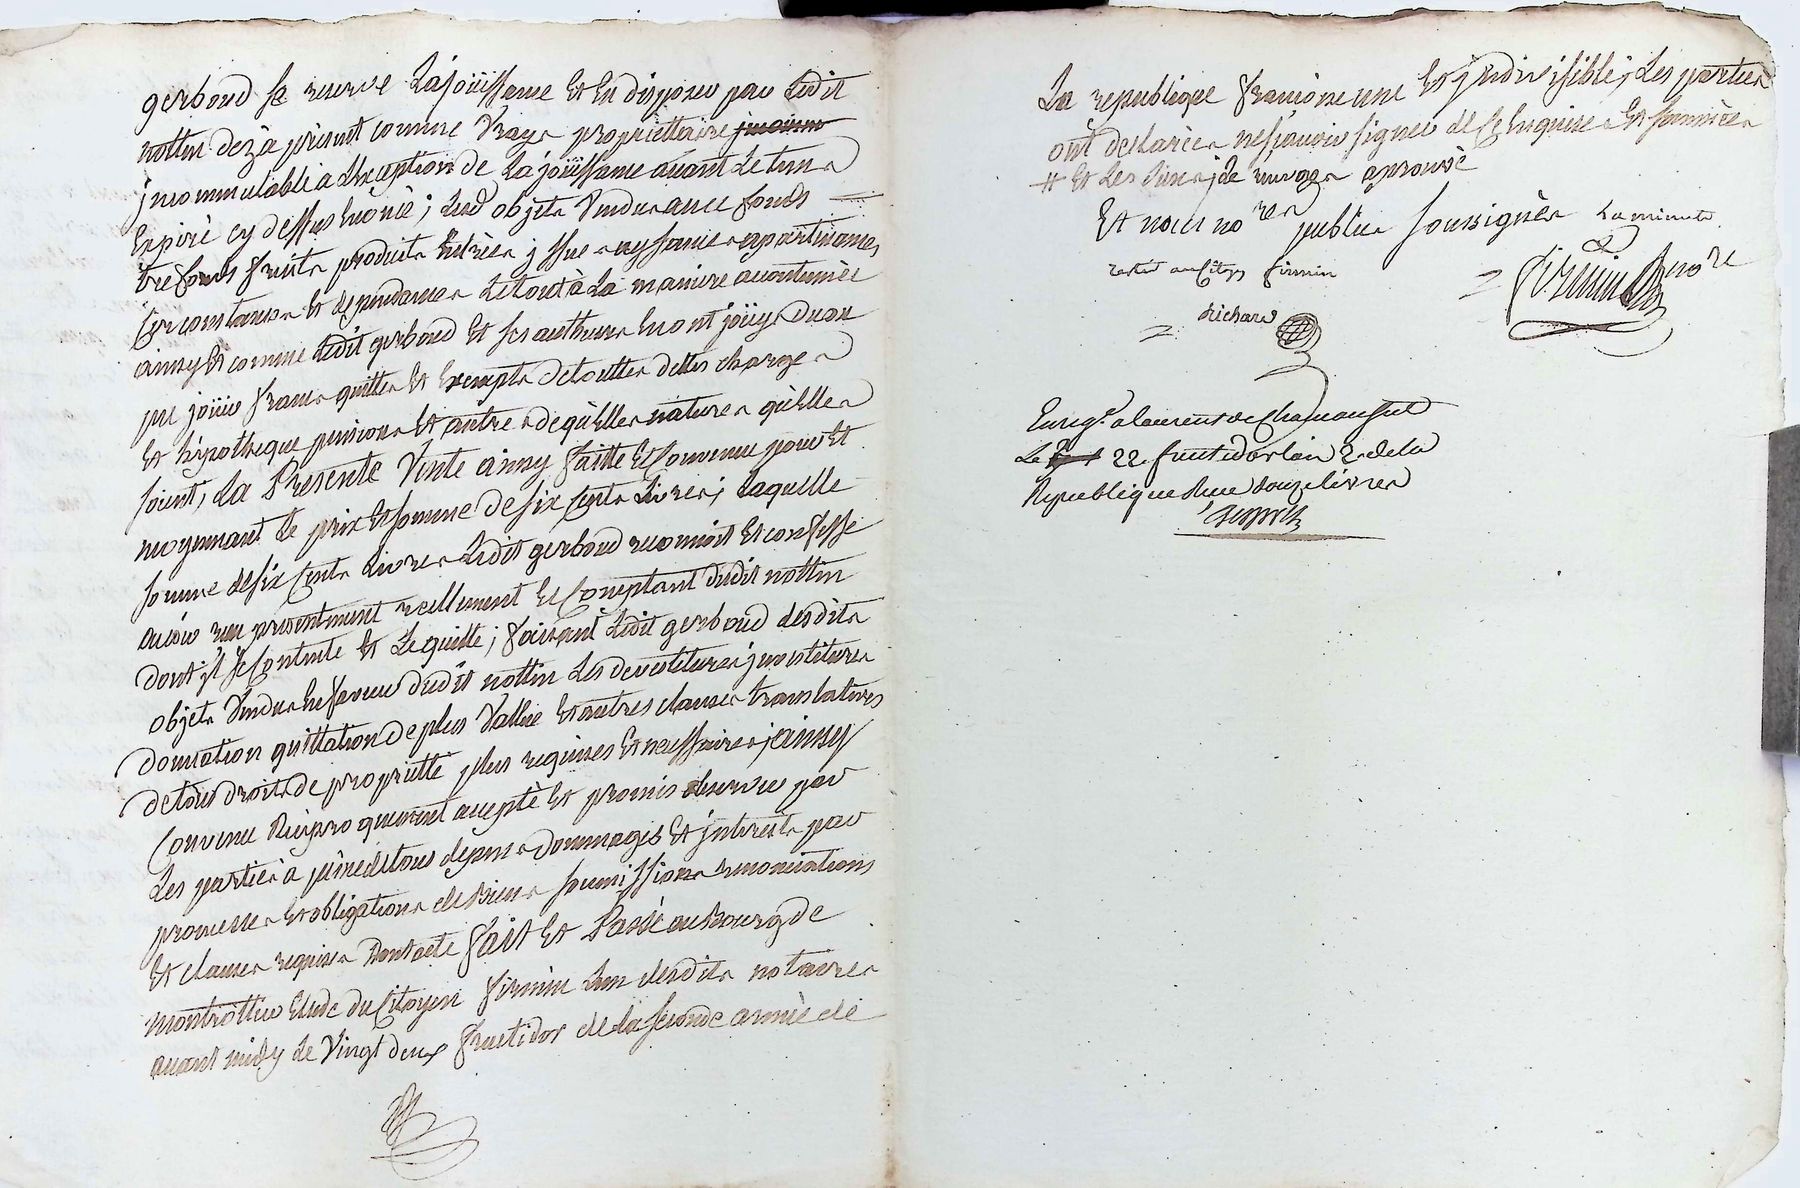 gerboud se reserve La joüissance Et En disposer par Ledit
nottin dezà présent comme Vrays propriettaire
jncommutable a L'exception de La joüissance avant Le terme
Expiré cy dessus Enoncé; Lesd objets Vendus avec fonds
trefonds fruits produits Entrées jssues aysances apartenances
Circonstances Et dependances Le tout à La maniere accoutumée
ainsy Et comme Ledit gerboud Et ses autheurs En ont joüy Duou
pu joüir francs quittes Et Exempts de touttes dettes charges
Et hipotheque pensions Et autres de qu'elles natures qu'elles
soient, La Presente Vente ainsy faitte Et Convenue pour Et
moyennant Le prix Et somme de six Cents Livres; Laquelle
somme de six Cents Livres Ledit gerboud reconnoit Et confesse
avoir reçu presentement reellement Et Comptant dudit nottin
dont jl se Contente Et Le quitte; faisant Ledit gerboud desdits
objets Vendus En faveur dudit nottin Les devestitures jnvestitures
donnation quittation De plus Vallue Et autres clauses translatives
de tous droits de propriette plus requises Et necessaires; ainsy
Convenu Reciproquement accepté Et promis observer par
Les parties a peine de tous depens Dommages Et jnterests par
promesses Et obligations de Biens soumissions renonciations
Et clauses requises Dont acte fait Et Passé au Bourg De
montrottier Etude du Citoyen firmin L'un desdits notaires
avant midy Le Vingt deux fructidor de la seconde année de
La republique francoise une Et jndivisible; Les parties
ont declarées ne sçavoir signer de Ce Enquises Et sommées
# Et Les
aprouvé
Et nous no.res publics soussignés La minute
restée au Citoy firmin
= firmin no.re
= Richard
Enreg.é a Laurent de Chamousset
Le 22 fructidor l'an 2 de la
Republique Reçu douze livres